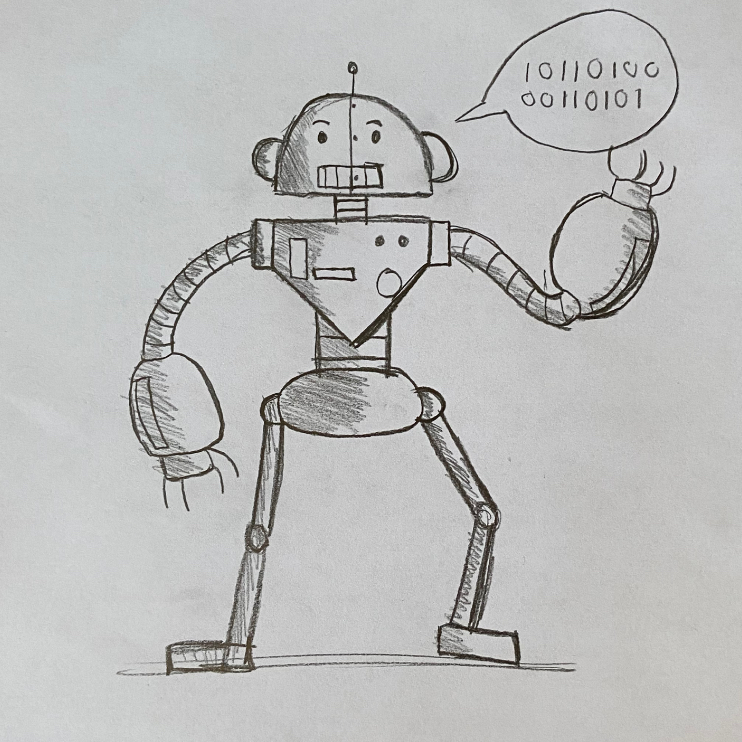 10110100
00110101